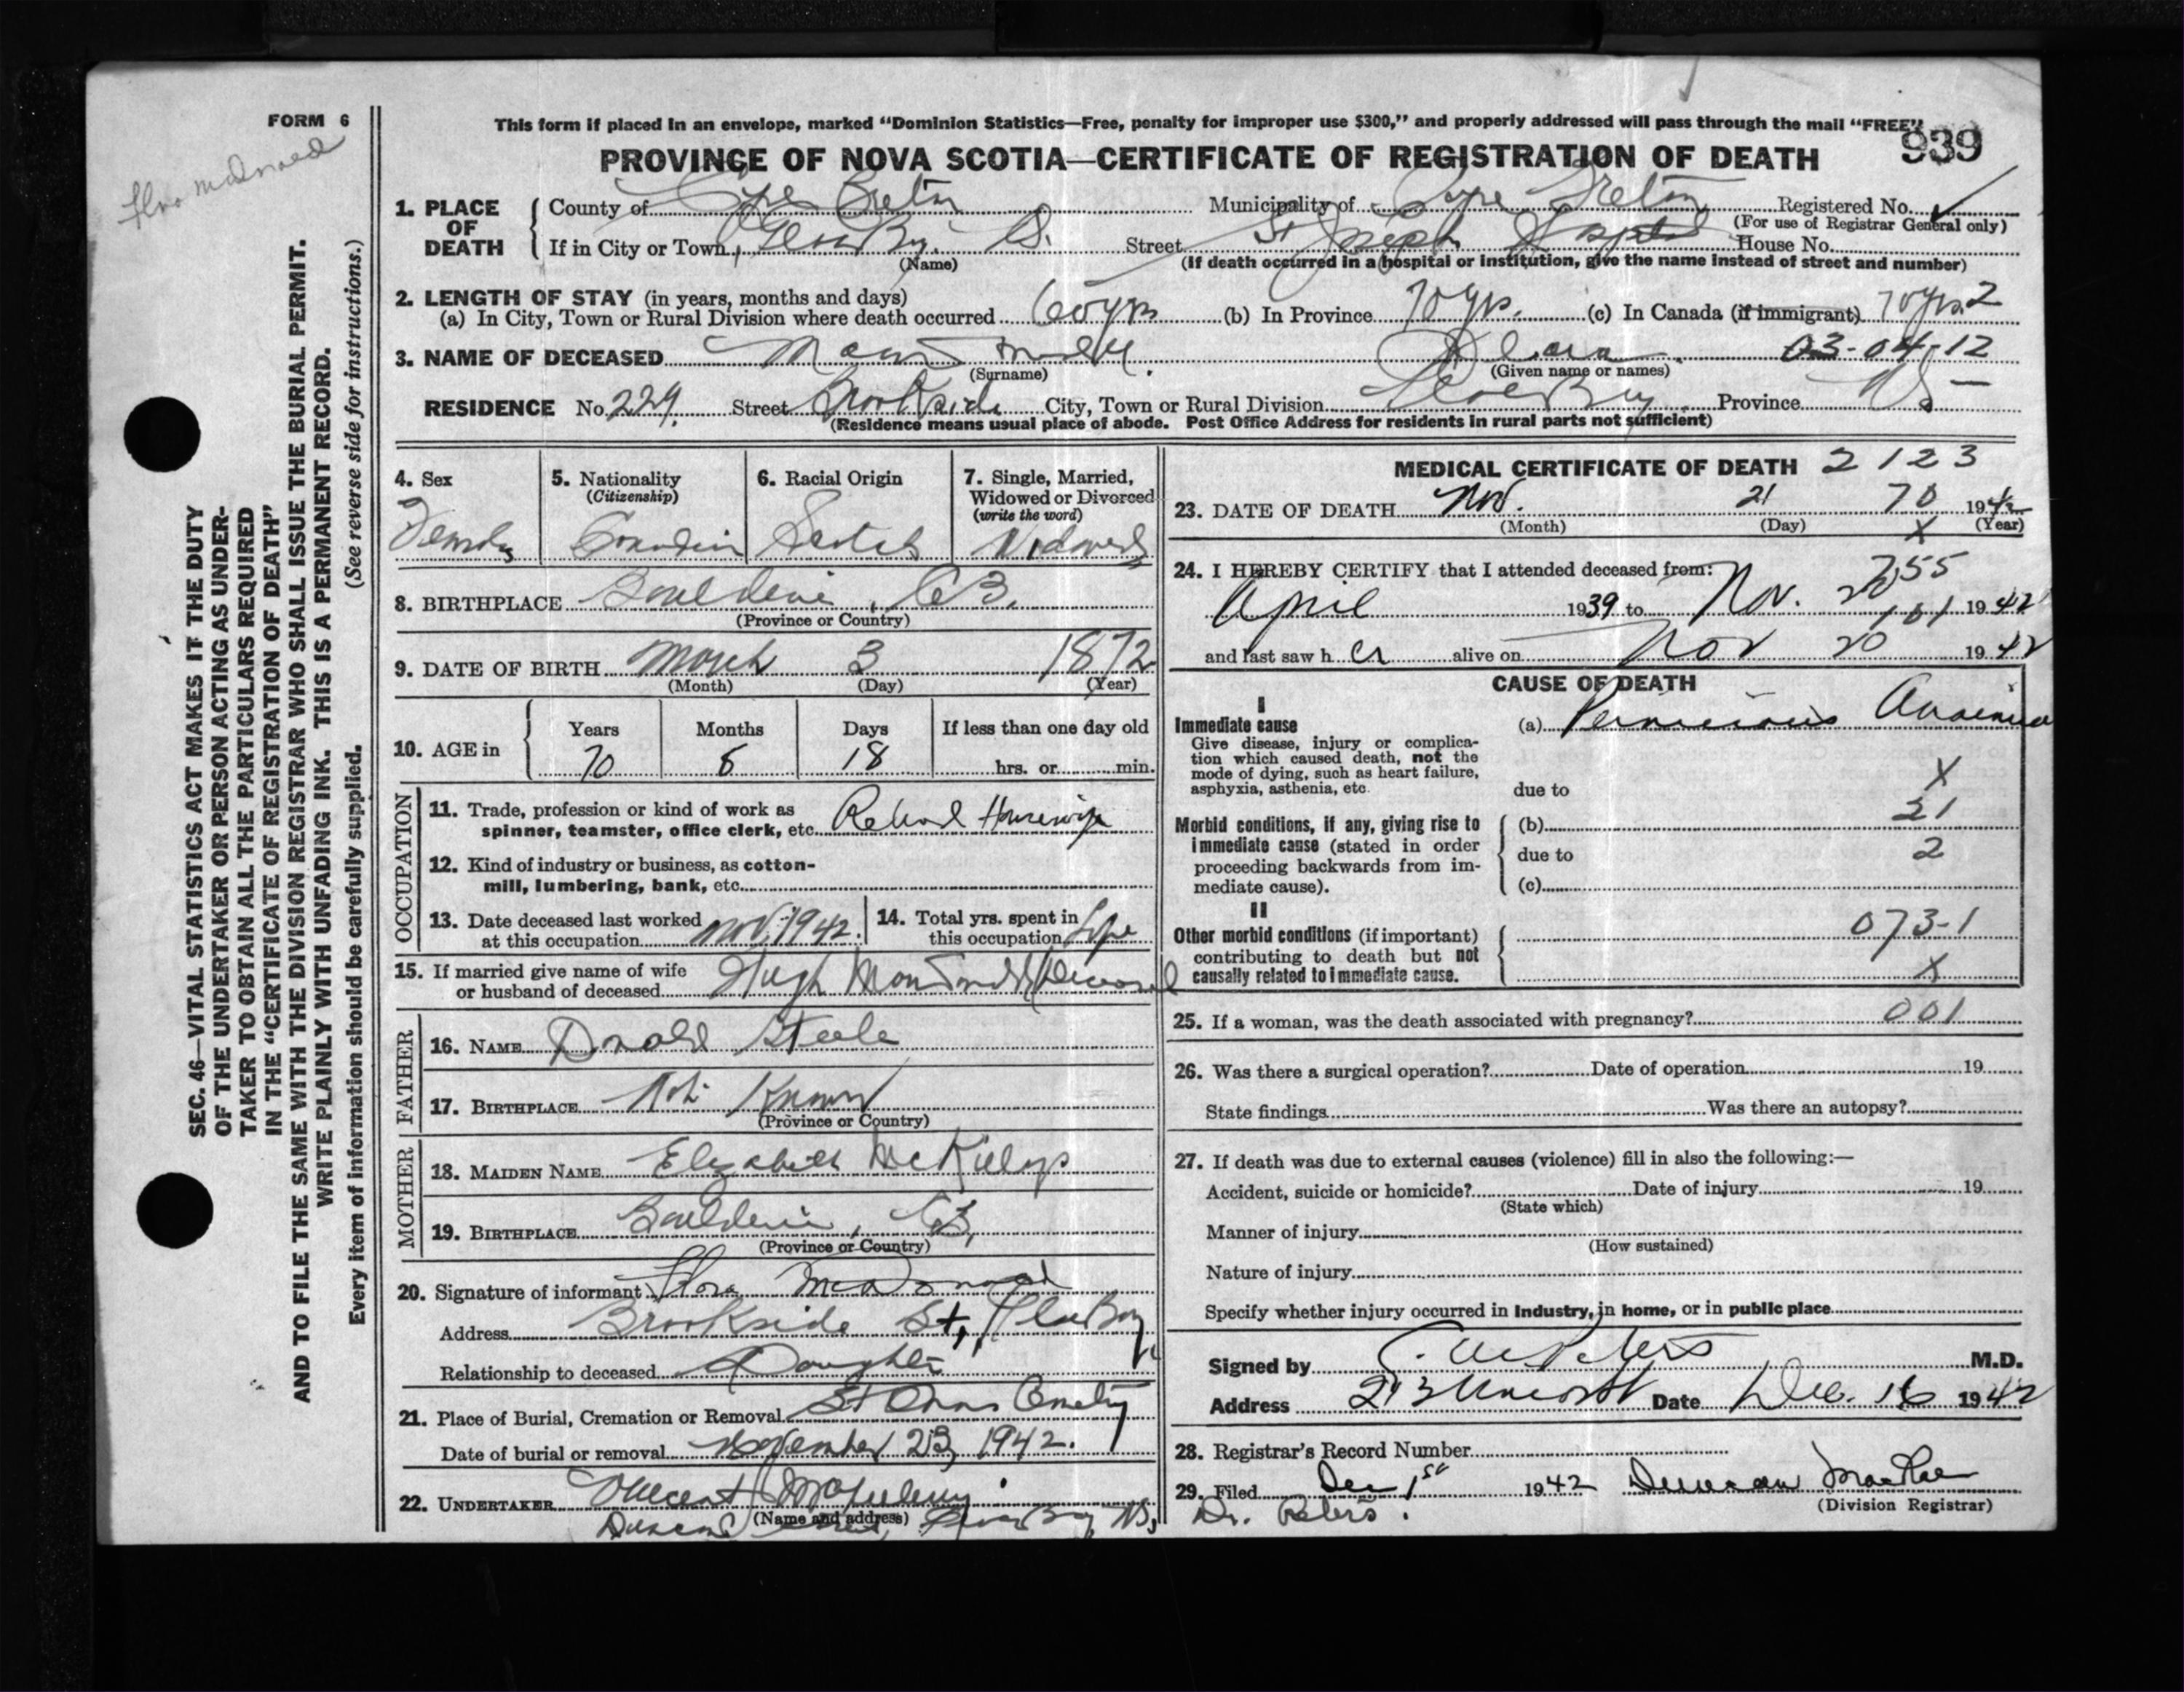 FORM 6
Flora McDonald
This form if placed in an envelope, marked “Dominion Statistics—Free, penalty for improper use $300,” and properly addressed will pass through the mail “FREE”
PROVINCE OF NOVA SCOTIA—CERTIFICATE OF REGISTRATION OF DEATH 939
1. PLACE OF DEATH
County of Cape Breton Municipality of Cape Breton Registered No.
(For use of Registrar General only)
If in City or Town, Glace Bay. Street St Joseph Hospital House No.
(Name) (If death occurred in a hospital or institution, give the name instead of street and number)
2. LENGTH OF STAY (in years, months and days)
(a) In City, Town or Rural Division where death occurred 60 yrs (b) In Province 70 yrs. (c) In Canada (if immigrant) 70 yrs. 2
3. NAME OF DECEASED 03-04-12
(Surname) (Given name or names)
RESIDENCE No. 229. Street Brookside City, Town or Rural Division Glace Bay Province NS
(Residence means usual place of abode. Post Office Address for residents in rural parts not sufficient)
4. Sex 5. Nationality (Citizenship) 6. Racial Origin 7. Single, Married, Widowed or Divorced (write the word)
Female Canadian Scotch Widowed
8. BIRTHPLACE C.B.
(Province or Country)
9. DATE OF BIRTH March 3 1872
(Month) (Day) (Year)
10. AGE in Years Months Days If less than one day old
70 18 hrs. or min.
OCCUPATION
11. Trade, profession or kind of work as spinner, teamster, office clerk, etc. Retired Housewife
12. Kind of industry or business, as cotton-mill, lumbering, bank, etc.
13. Date deceased last worked at this occupation Nov. 1942.
14. Total yrs. spent in this occupation Life
15. If married give name of wife or husband of deceased Hugh
FATHER
16. NAME Donald Steele
17. BIRTHPLACE Not Known
(Province or Country)
MOTHER
18. MAIDEN NAME Elizabeth
19. BIRTHPLACE C.B.
(Province or Country)
20. Signature of informant Flora McDonald
Address Brookside St, Glace Bay
Relationship to deceased Daughter
21. Place of Burial, Cremation or Removal St Anns Cemetery
Date of burial or removal November 23, 1942.
22. UNDERTAKER Vincent
(Name and address)
Glace Bay, NS
MEDICAL CERTIFICATE OF DEATH 2123
23. DATE OF DEATH Nov. 21 70 1942
(Month) (Day) X (Year)
24. I HEREBY CERTIFY that I attended deceased from:
April 1939 to Nov. 20 1942
and last saw h er alive on Nov 20 1942
CAUSE OF DEATH
I
Immediate cause (a) Pernicious Anaemia
Give disease, injury or complication which caused death, not the mode of dying, such as heart failure, asphyxia, asthenia, etc.
due to X
Morbid conditions, if any, giving rise to immediate cause (stated in order proceeding backwards from immediate cause).
(b) 21
due to 2
(c)
II
Other morbid conditions (if important) contributing to death but not causally related to immediate cause.
073-1
X
25. If a woman, was the death associated with pregnancy? 001
26. Was there a surgical operation? Date of operation 19
State findings Was there an autopsy?
27. If death was due to external causes (violence) fill in also the following:—
Accident, suicide or homicide? Date of injury 19
(State which)
Manner of injury
(How sustained)
Nature of injury
Specify whether injury occurred in Industry, in home, or in public place
Signed by M.D.
Address Date Dec. 16 1942
28. Registrar's Record Number
29. Filed Dec 1st 1942 Duncan MacRae
(Division Registrar)
Dr. Peters.
SEC. 46—VITAL STATISTICS ACT MAKES IT THE DUTY
OF THE UNDERTAKER OR PERSON ACTING AS UNDER-
TAKER TO OBTAIN ALL THE PARTICULARS REQUIRED
IN THE “CERTIFICATE OF REGISTRATION OF DEATH”
AND TO FILE THE SAME WITH THE DIVISION REGISTRAR WHO SHALL ISSUE THE BURIAL PERMIT.
WRITE PLAINLY WITH UNFADING INK. THIS IS A PERMANENT RECORD.
Every item of information should be carefully supplied. (See reverse side for instructions.)